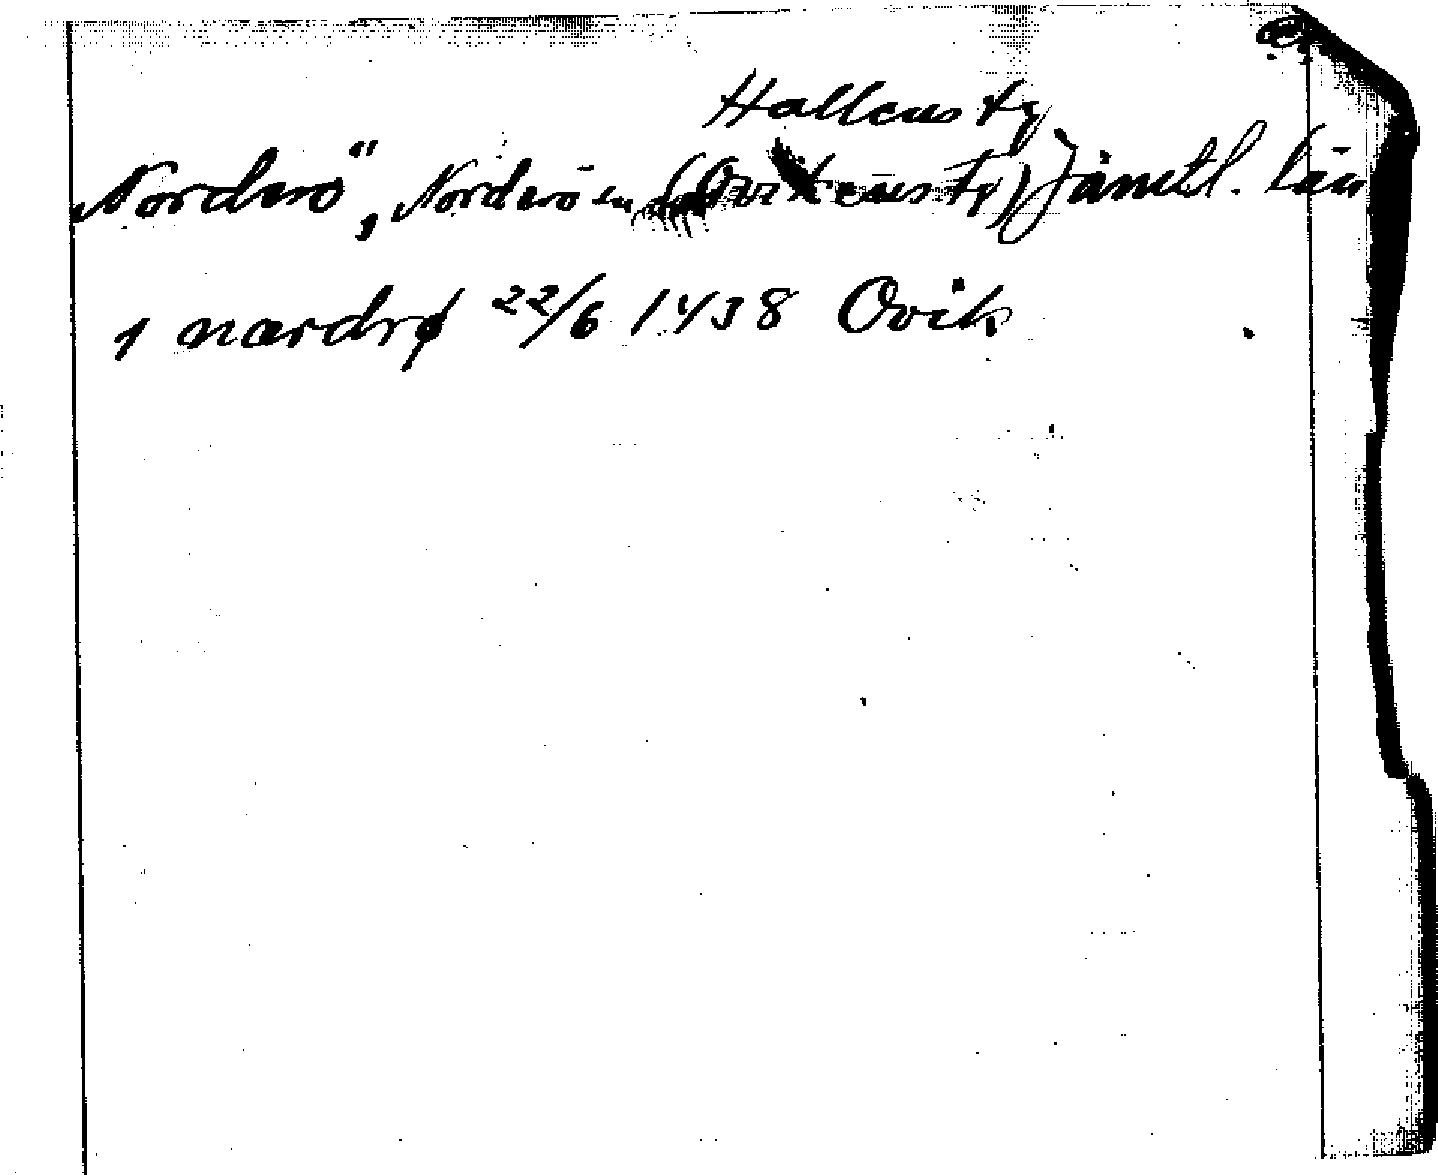 Hallens tg
Norderö", Norderön (Ovikens tg) Jämtl. län
1 nordrø 22/6 1438 Ovik